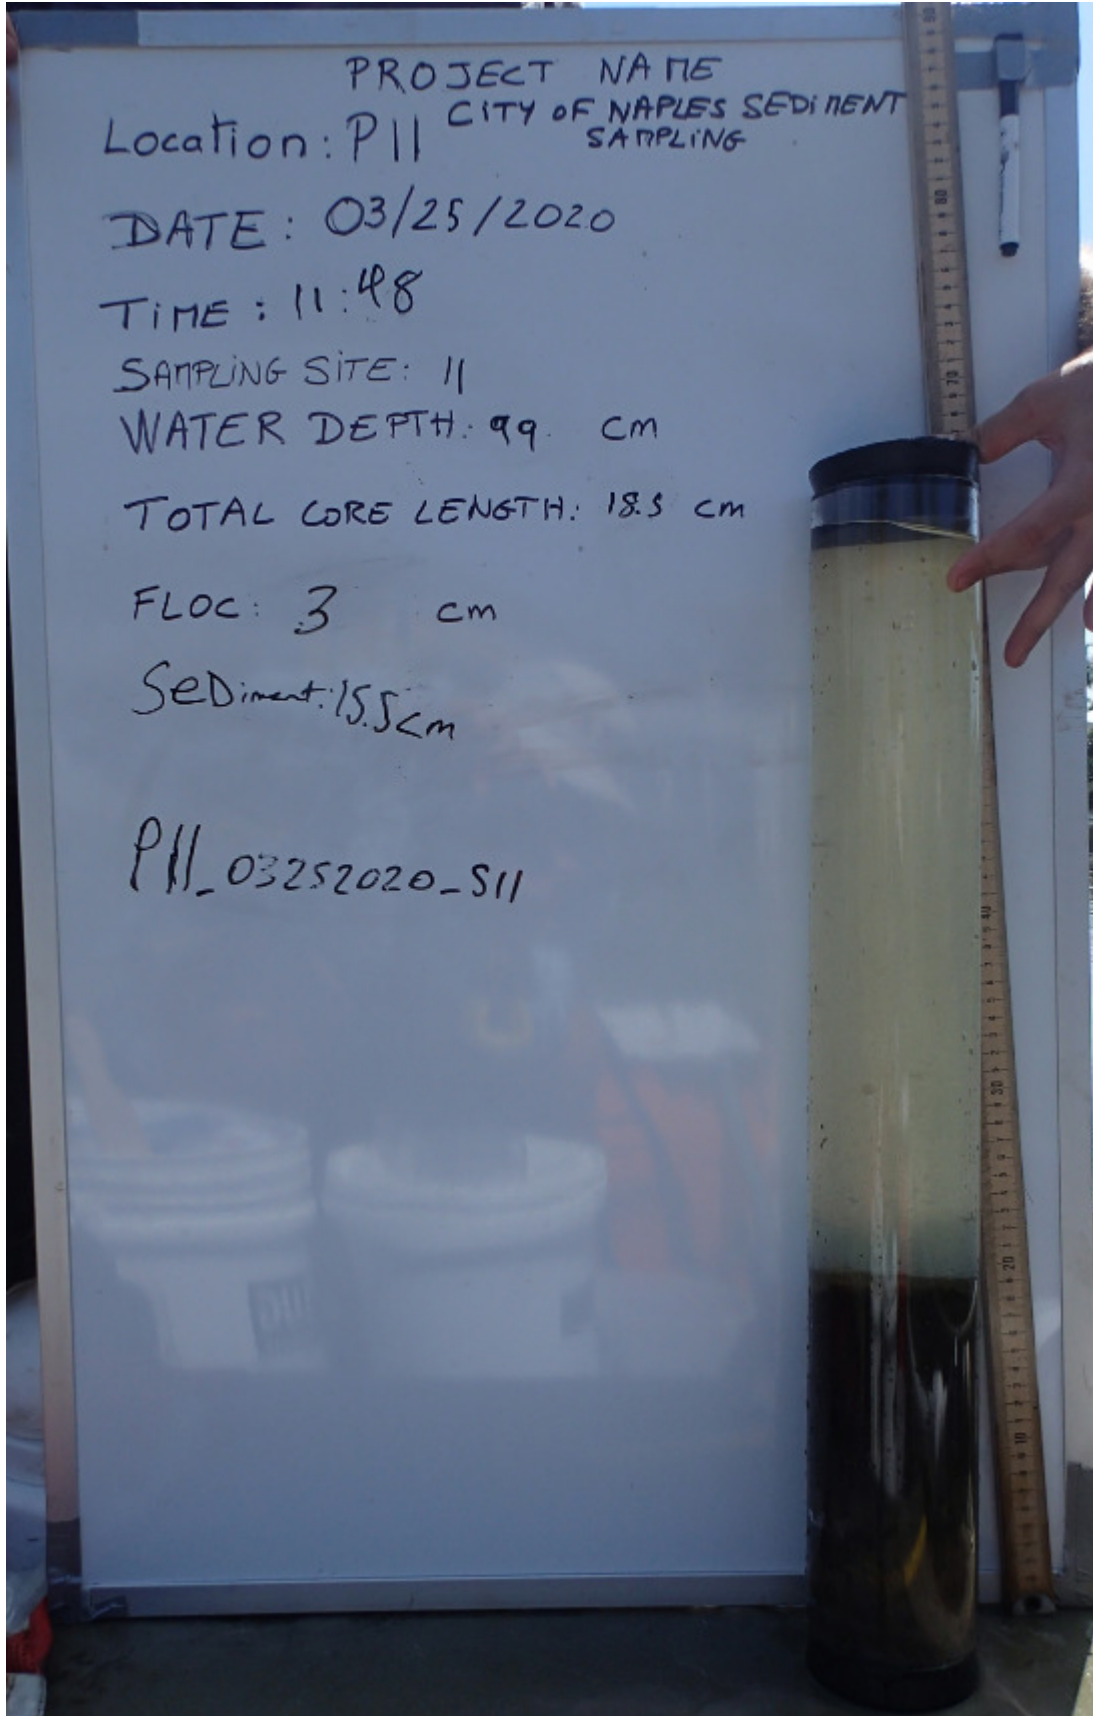 PROJECT NAME
CITY OF NAPLES SEDIMENT
SAMPLING
Location: P11
DATE: 03/25/2020
TIME: 11:48
SAMPLING SITE: 11
WATER DEPTH: 99. cm
TOTAL CORE LENGTH: 18.5 cm
FLOC: 3 cm
SeDiment: 15.5cm
P11_03252020_S11
80
70
40
30
20
10